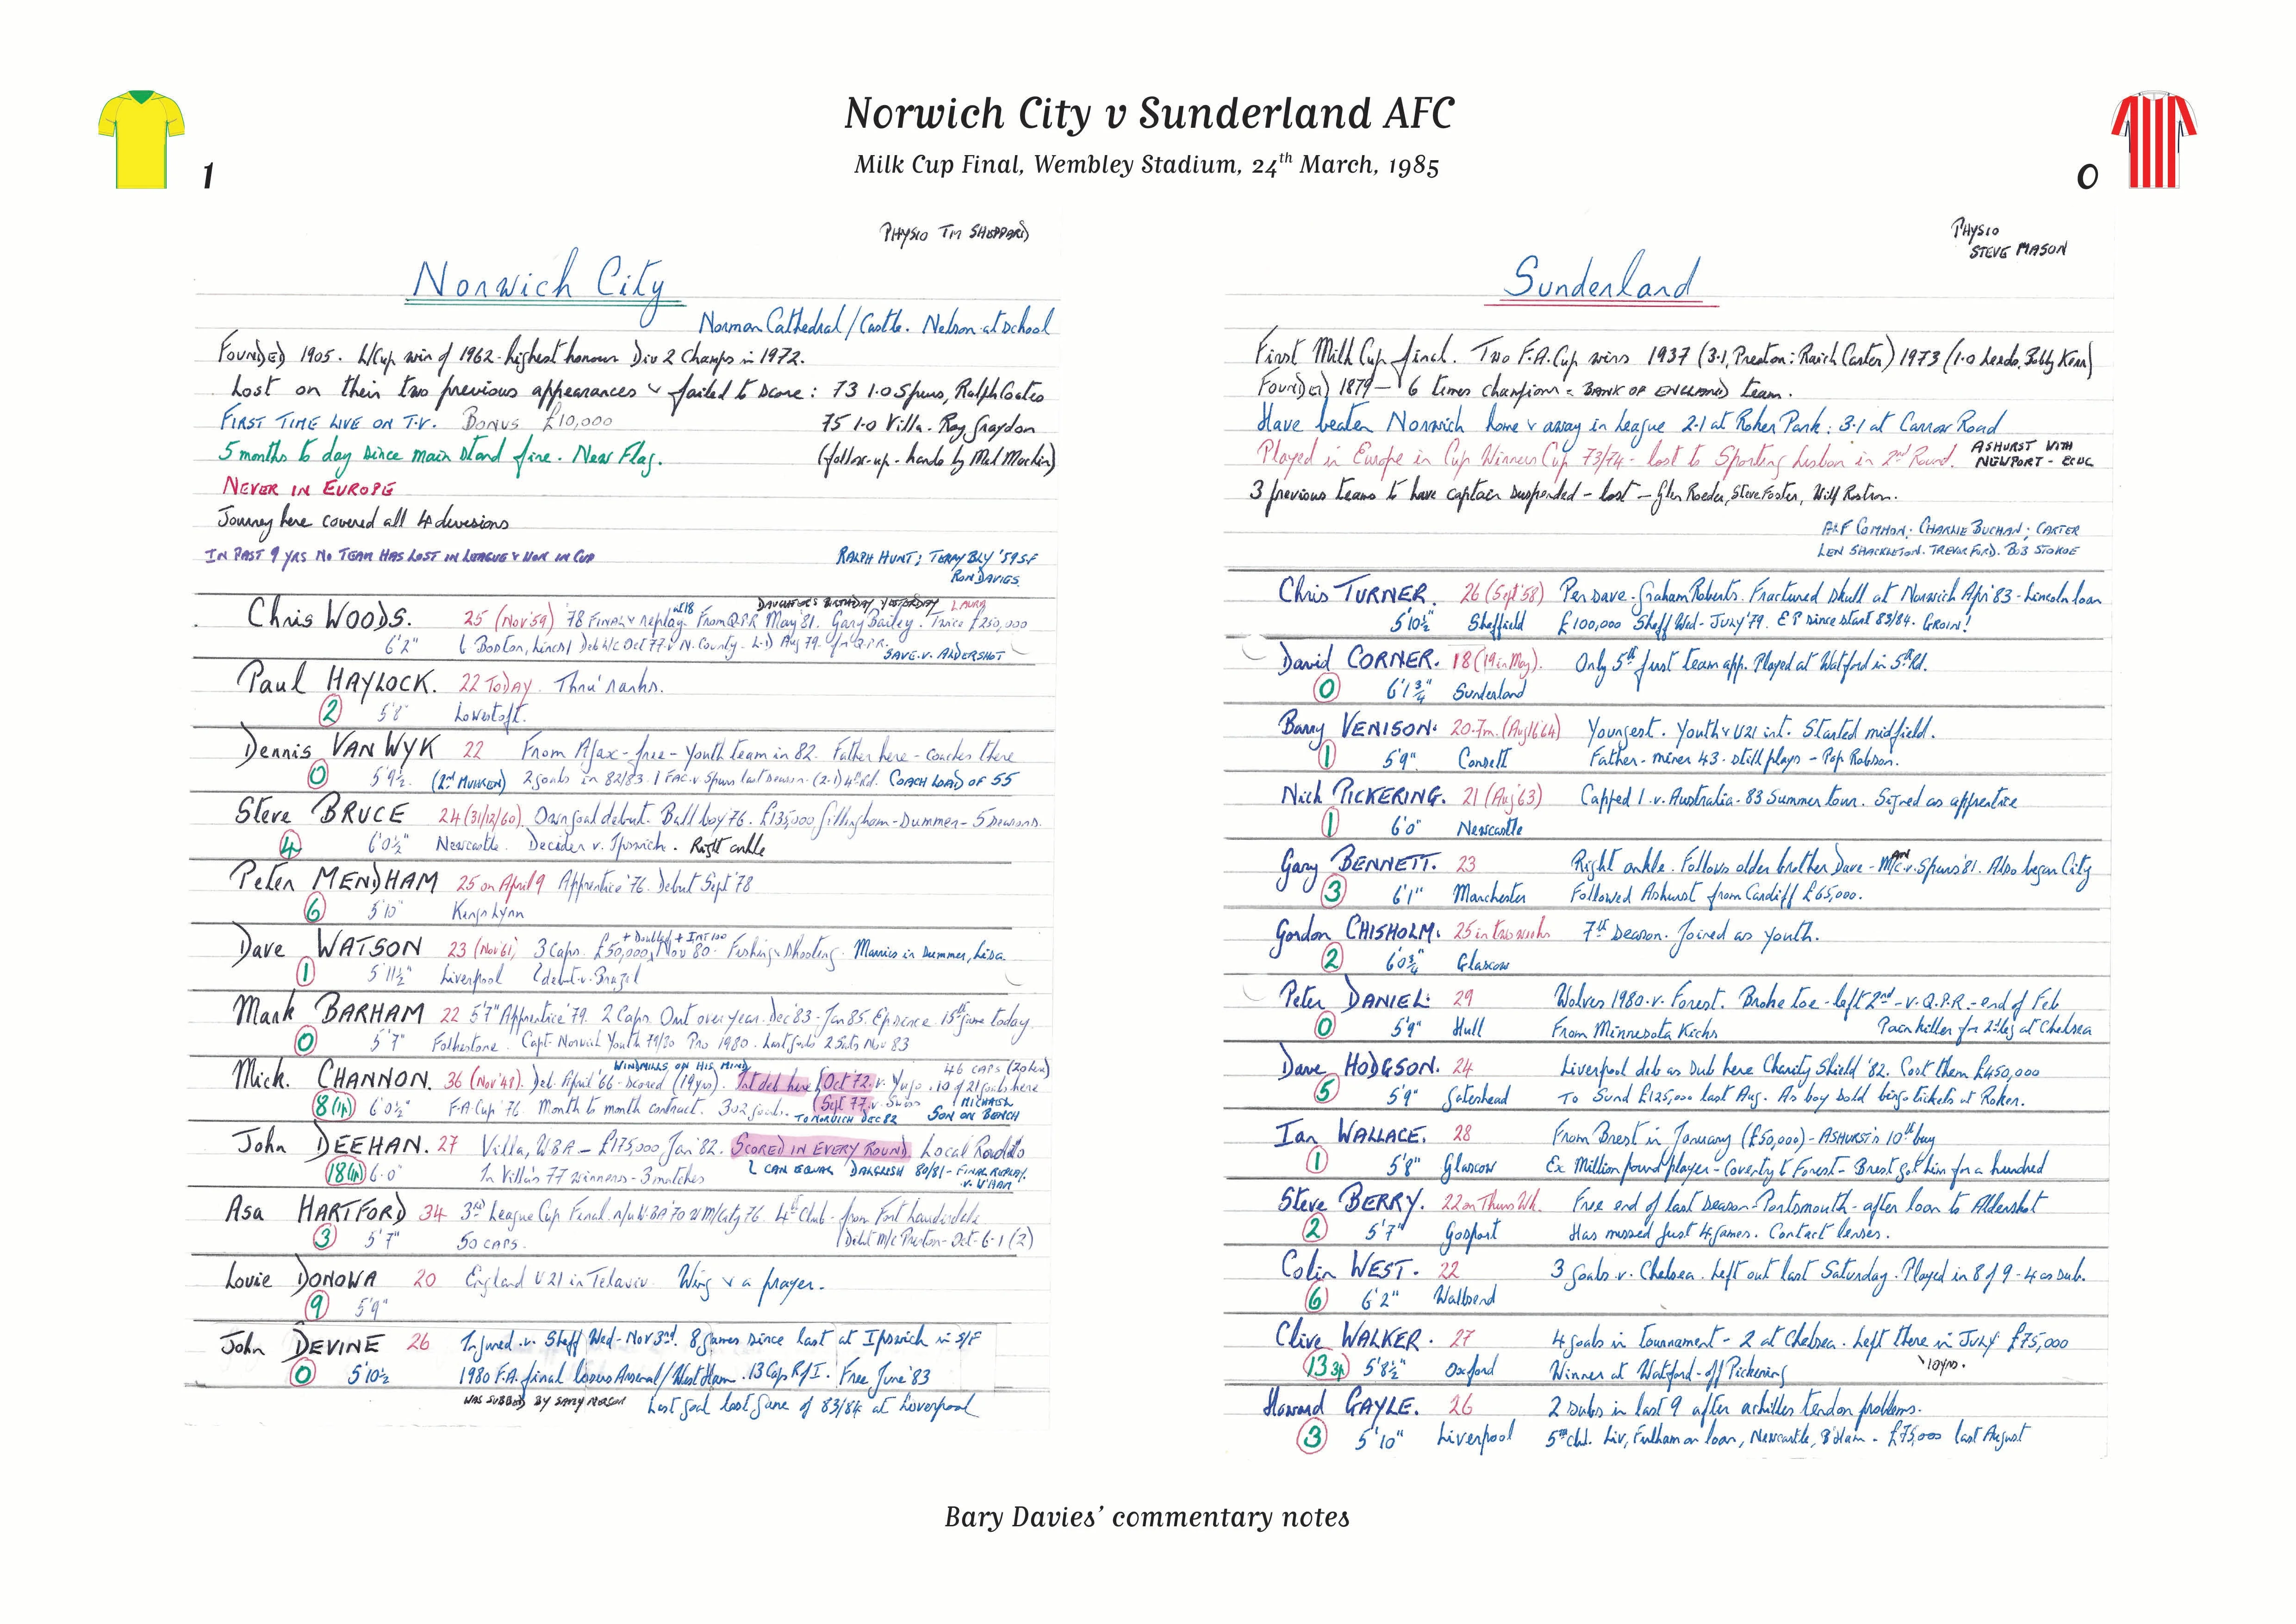 Norwich City v Sunderland AFC
Milk Cup Final, Wembley Stadium, 24th March, 1985
1
0
PHYSIO TIM SHEPPARD
Norwich City
Norman Cathedral/Castle. Nelson at school
FOUNDED 1905. L/Cup win of 1962 - highest honour Div 2 Champs in 1972.
Lost on their two previous appearances & failed to score: 73 1.0 Spurs, Ralph Coates
FIRST TIME LIVE ON T.V. BONUS £10,000 75 1-0 Villa. Ray Graydon
5 months to day since main stand fire. New Flag. (follow-up - hands by Mel Machin)
NEVER IN EUROPE
Journey here covered all 4 divisions
IN PAST 9 YRS NO TEAM HAS LOST IN LEAGUE & WON IN CUP
RALPH HUNT; TERRY BLY '59 S-F
RON DAVIES.
DAUGHTER'S BIRTHDAY YESTERDAY LAURA
Chris WOODS. 25 (Nov'59) '78 FINAL & replay at 18 From Q.P.R May '81. Gary Bailey. Twice £250,000
6'2" Boston, Lincs Deb L/C Oct 77 v N. County. L-D Aug 79. for Q.P.R.
SAVE.V. ALDERSHOT
Paul HAYLOCK. 22 TODAY. Thru' ranks.
2 5'8" Lowestoft.
Dennis VAN WYK 22 From Ajax - free - Youth team in 82. Father here - coaches there
0 5'9½. (2nd MUHREN) 2 goals in 82/83. 1 FAC. v Spurs last season. (2-1) 4th Rd. COACH LOAD OF 55
Steve BRUCE 24 (31/12/60). Own goal debut. Ball boy 76. £135,000 Gillingham - Summer - 5 seasons.
4 6'0½" Newcastle. Decider v. Ipswich. Right ankle
Peter MENDHAM 25 on April 9 Apprentice '76. Debut Sept '78
6 5'10" Kings Lynn
+ Doubled + INT 100
Dave WATSON 23 (Nov'61) 3 Caps. £50,000, Nov 80. Fishing & shooting. Marries in summer, Lisa.
1 5'11½" Liverpool debut v. Brazil
Mark BARHAM 22 5'7" Apprentice '79. 2 Caps. Out over year. Dec 83 - Jan 85. Ep since. 15th game today.
0 5'7" Folkestone. Capt. Norwich Youth 79/80 Pro 1980. Last goals 2 Sats Nov 83
WINDMILLS ON HIS MIND 46 CAPS (20 here)
Mick. CHANNON. 36 (Nov'48). Deb. April '66 - scored (19 yrs). Int deb here (Oct '72. v. Yugo. 10 of 21 goals here
8 (1p) 6'0½" F.A. Cup '76. Month to month contract. 302 goals. (Sept 77. v. Swiss MICHAEL
TO NORWICH DEC 82 SON ON BENCH
John DEEHAN. 27 Villa, W.B.A - £175,000 Jan '82. SCORED IN EVERY ROUND. Local Radio
18 6'0" In Villa's 77 winners - 3 matches CAN EQUAL DALGLISH 80/81 - FINAL REPLAY.
v. W'HAM
Asa HARTFORD 34 3rd League Cup Final. r/u W.BA 70 W M/City 76. 4th Club - from Fort Lauderdale
3 5'7" 50 CAPS. Norwich Preston - Oct - 6-1 (2)
Louie DONOWA 20 England U21 in Telaviv. Wing & a prayer.
9 5'9"
John DEVINE 26 Injured v. Sheff Wed - Nov 3rd. 8 games since last at Ipswich in S/F
0 5'10½ 1980 F.A. final losers Arsenal/West Ham. 13 Caps R of I. Free June '83
WAS SUBBED BY SAMMY NELSON Last goal last game of 83/84 at Liverpool
PHYSIO
STEVE MASON
Sunderland
First Milk Cup final. Two F.A. Cup wins 1937 (3-1, Preston: Raich Carter) 1973 (1-0 Leeds, Bobby Kerr)
FOUNDED 1879 - 6 times champions - BANK OF ENGLAND team.
Have beaten Norwich home & away in League 2-1 at Roker Park: 3-1 at Carrow Road
Played in Europe in Cup Winners Cup 73/74 - lost to Sporting Lisbon in 2nd Round. ASHURST WITH
NEWPORT - ECWC
3 previous teams to have captain suspended - lost - Glen Roeder, Steve Foster, Wilf Rostron.
ALF COMMON; CHARLIE BUCHAN; CARTER
LEN SHACKLETON. TREVOR FORD. BOB STOKOE
Chris TURNER. 26 (Sept '58) Pen save - Graham Roberts. Fractured skull at Norwich Apr '83 - Lincoln loan
5'10½" Sheffield £100,000 Sheff Wed - JULY '79. E P since start 83/84. GROIN!
David CORNER. 18 (19 in May). Only 5th first team app. Played at Watford in 5th Rd.
0 6'1¾" Sunderland
Barry VENISON. 20-7m. (Aug 16 64) Youngest. Youth & U21 int. Started midfield.
1 5'9" Consett Father - miner 43 - still plays - Pop Robson.
Nick PICKERING. 21 (Aug '63) Capped 1 v. Australia - 83 Summer tour. Signed as apprentice
1 6'0" Newcastle
Gary BENNETT. 23 Right ankle. Follows older brother Dave - MAN C v. Spurs '81. Also began City
3 6'1" Manchester Followed Ashurst from Cardiff £65,000.
Gordon CHISHOLM. 25 in two weeks 7th season. Joined as youth.
2 6'0¾" Glascow
Peter DANIEL. 29 Wolves 1980 v. Forest. Broke toe - left 2nd - v. Q.P.R. - end of Feb
0 5'9" Hull From Minnesota Kicks Pain killer for 2nd leg at Chelsea
Dave HODGSON. 24 Liverpool deb as sub here Charity Shield '82. Cost them £450,000
5 5'9" Gateshead To Sund £125,000 last Aug. As boy sold bingo tickets at Roker.
Ian WALLACE. 28 From Brest in January (£50,000) - ASHURST'S 10th buy
1 5'8" Glascow Ex Million pound player - Coventry to Forest - Brest got him for a hundred
Steve BERRY. 22 on Thurs Wk. Free end of last season - Portsmouth - after loan to Aldershot
2 5'7" Gosport Has missed just 4 games. Contact lenses.
Colin WEST. 22 3 goals v. Chelsea. Left out last Saturday. Played in 8 of 9 - 4 as sub.
6 6'2" Wallsend
Clive WALKER. 27 4 goals in tournament - 2 at Chelsea. Left there in JULY £75,000
13 3p 5'8½" Oxford Winner at Watford - off Pickering 10yrs.
Howard GAYLE. 26 2 subs in last 9 after achilles tendon problems.
3 5'10" Liverpool 5th club. Liv, Fulham on loan, Newcastle, B'Ham - £75,000 last August
Bary Davies' commentary notes